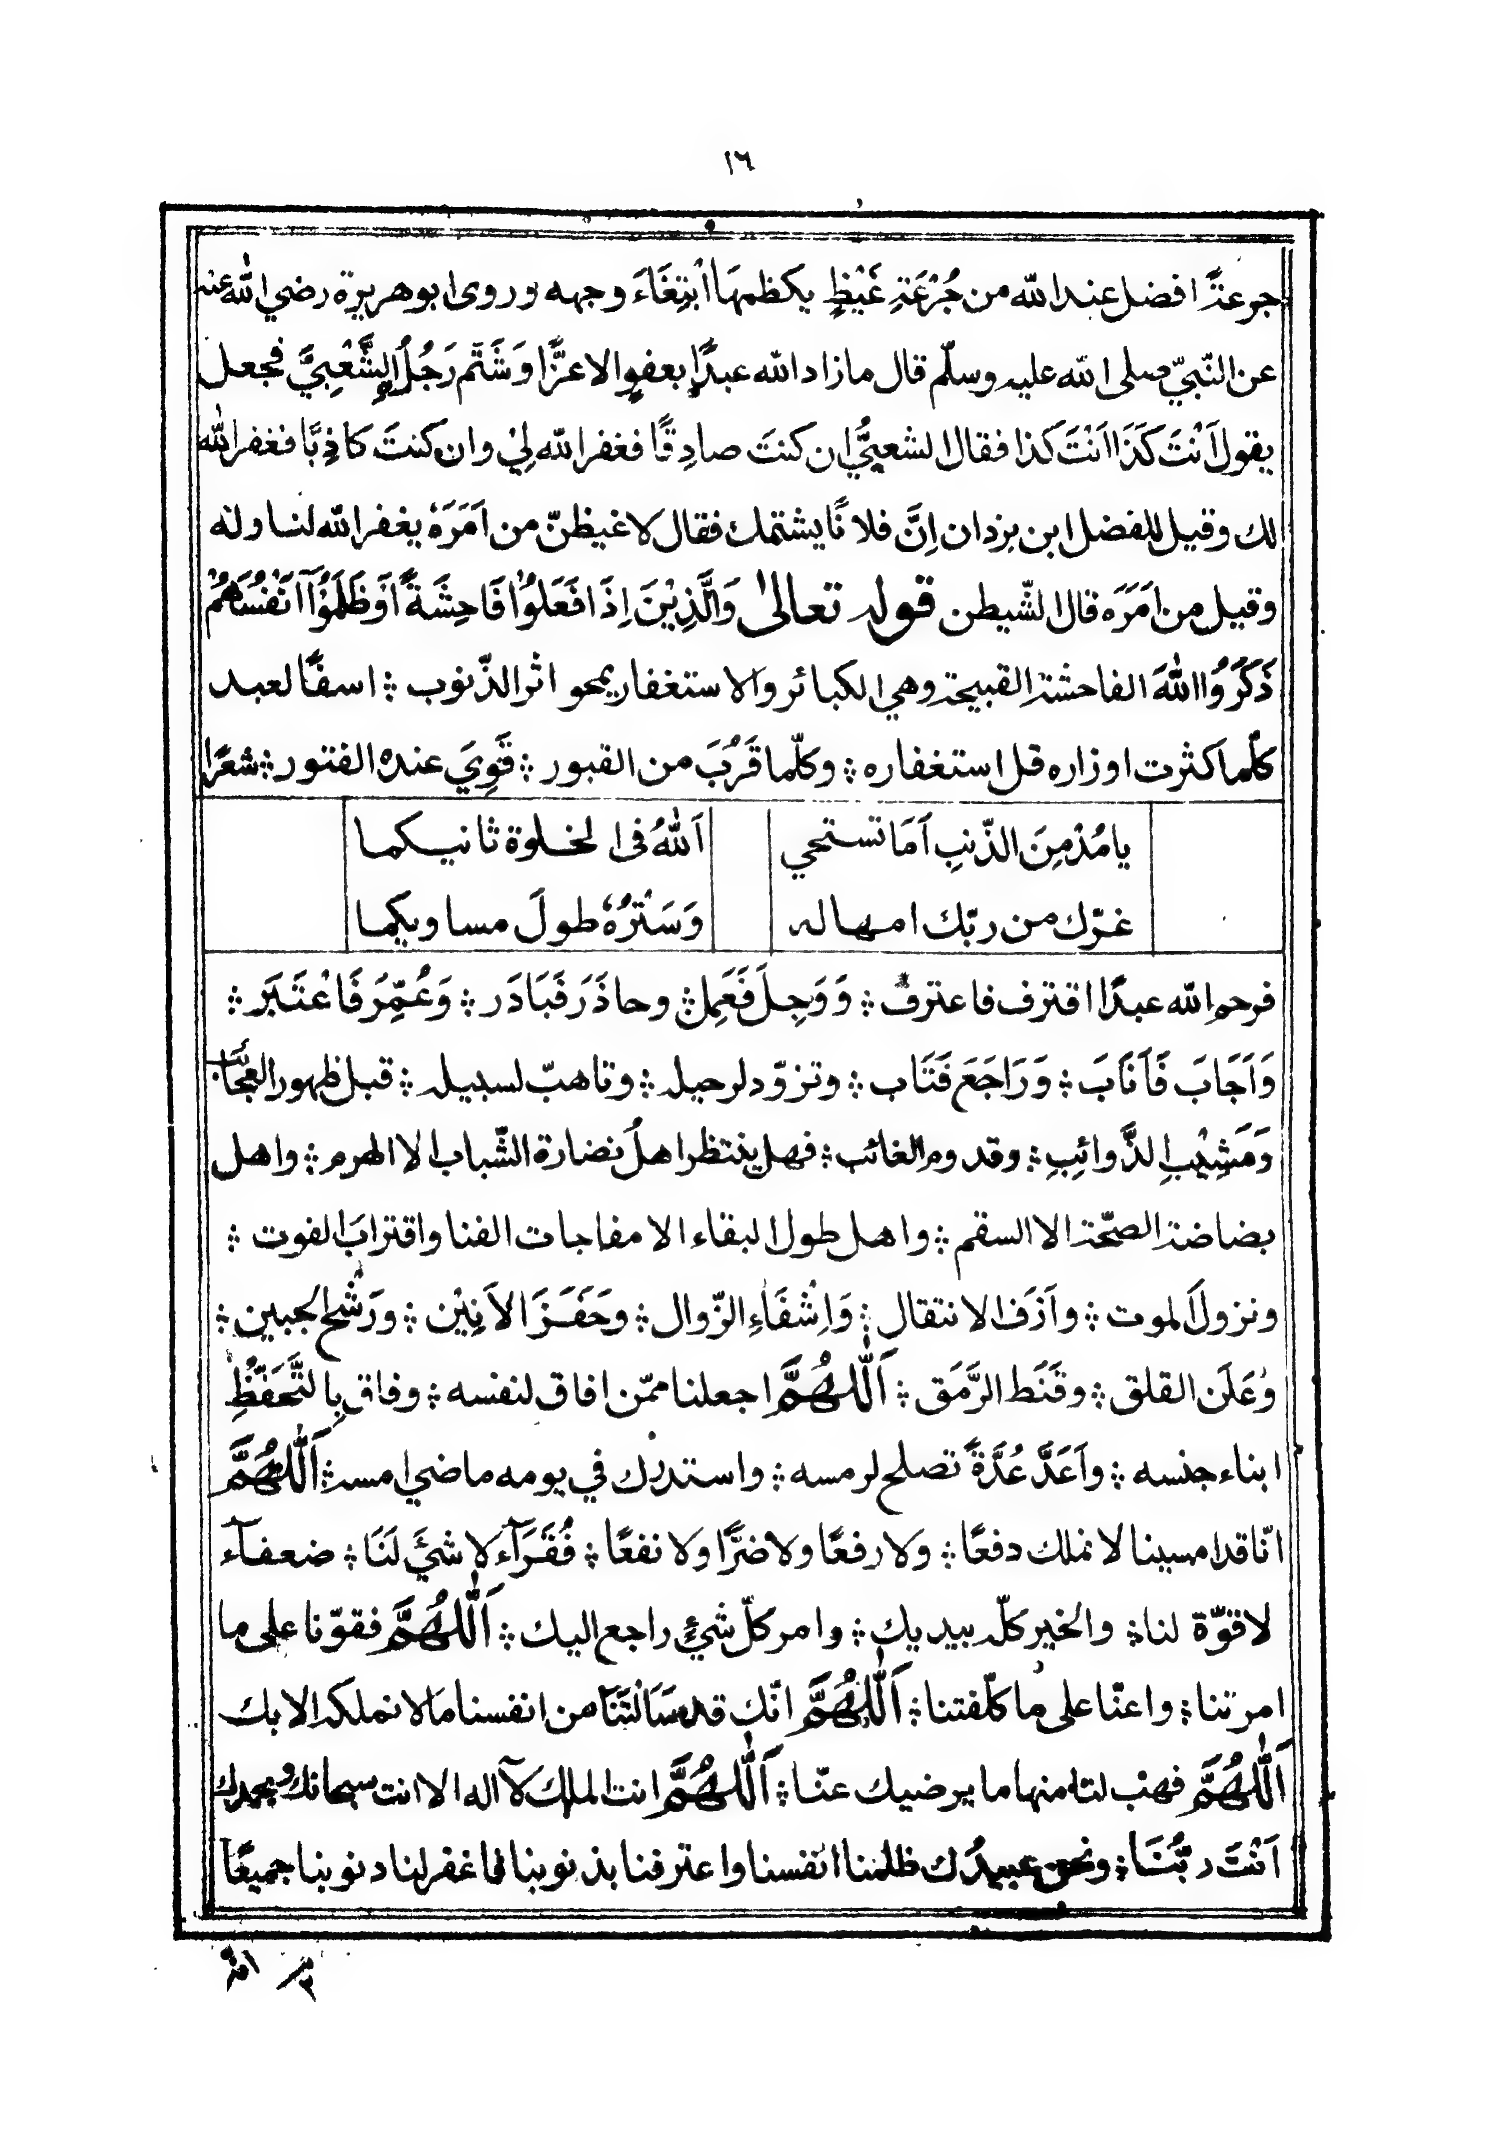 ١٦
جرعةً افضل عند الله من جُرْعَةِ غَيْظٍ يكظمهَا اْبتِغَاءَ وجهه وروى ابو هريرة رضي الله عنه
عن النّبيّ صلى الله عليه وسلّم قال ما زاد الله عبدًا بعفوٍ الا عزًّا وَشَتَم رَجُلُ الشَّعْبِيَّ فجعل
يقول اَنْتَ كَذَا اَنْتَ كذا فقال الشعبيُّ ان كنتَ صادِقًا فغفر الله لِيْ وان كنتَ كاذِبًا فغفر الله
لك وقيل للفضل ابن بزدان اِنَّ فلانًا يشتمك فقال لاغيظنّ من اَمَرَهٗ يغفر الله لنا وله
وقيل من اَمَرَه قال الشّيطن قوله تعالىٰ وَالَّذِيْنَ اِذَا فَعَلُوْا فَاحِشَةً اَوْ ظَلَمُوْٓا اَنْفُسَهُمْ
ذَكَرُوا اللّٰهَ الفاحشة القبيحة وهي الكبائر والاستغفار يمحو اثر الذّنوب ؞ اسفًا لعبد
كلّما كثرت اوزاره قل استغفاره ؞ وكلّما قَرُبَ من القبور ؞ قَوِيَ عنده الفتور ؞ شعرًا
يا مُدْمِنَ الذّنبِ اَمَا تستحي اَللّٰهُ فى الخلوة ثانيكما
غرّك من ربّك امهاله وَسَتْرُهٗ طولَ مساويكما
فرحم الله عبدًا اقترف فاعترف ؞ وَوَجِلَ فَعَمِلَ ؞ وحاذَرَ فَبَادَر ؞ وَعُمِّرَ فَاعْتَبَر ؞
وَاَجَابَ فَاَنَابَ ؞ وَرَاجَعَ فَتَاب ؞ وتزوّد لرحيله ؞ وتاهبّ لسبيله ؞ قبل ظهور العجَائب
وَمَشِيْبِ الذَّوائِبِ ؞ وقدوم الغائب ؞ فهل ينتظر اهلُ نضارة الشّباب الا الهرم ؞ واهل
بضاضة الصحّة الا السقم ؞ واهل طول البقاء الا مفاجات الفنا واقترابَ الفوت ؞
ونزولَ الموت ؞ وَاَزَفَ الانتقال ؞ وَاِشْفَاءِ الزّوال ؞ وحَفَزَ الاَنِيْن ؞ ورَشْحُ الجبين ؞
وُعَلَن القلق ؞ وقَنَط الرَّمَق ؞ اَللّٰهُمَّ اجعلنا ممّن افاق لنفسه ؞ وفاق بِالتَّحَفُّظِ
ابناء جنسه ؞ واَعَدَّ عُدَّةً تصلح لرمسه ؞ واستدرك في يومه ما ضي امسه ؞ اَللّٰهُمَّ
انّا قد امسينا لا نملك دفعًا ؞ ولا رفعًا ولا ضرًّا ولا نفعًا ؞ فُقَرَآء لا شئَ لَنَا ؞ ضعفآء
لا قوّة لنا ؞ والخير كلّه بيديك ؞ وامر كلّ شئٍ راجع اليك ؞ اَللّٰهُمَّ فقوّنا على ما
امرتنا ؞ واعنّا على ما كلّفتنا ؞ اَللّٰهُمَّ انّك قد سَالْتَنَا من انفسنا ما لا نملكه الا بك
اَللّٰهُمَّ فهبْ لنا منها ما يرضيك عنّا ؞ اَللّٰهُمَّ انت الملك لآ اله الا انت سبحانك وبحمدك
اَنْتَ ربُّنَا ؞ ونحن عبيدُك ظلمنا انفسنا واعترفنا بذنوبنا فاغفر لنا ذنوبنا جميعًا